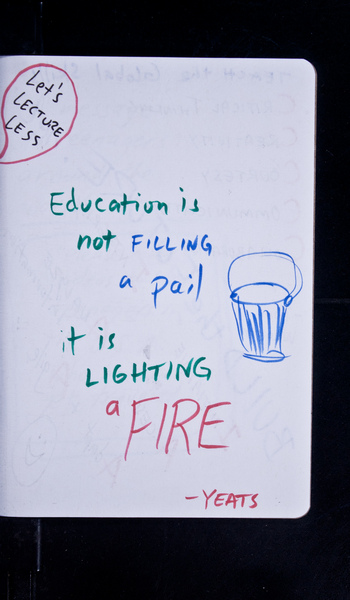 Let's
LECTURE
LESS
Education is
not FILLING
a pail
it is
LIGHTING
a FIRE
-YEATS